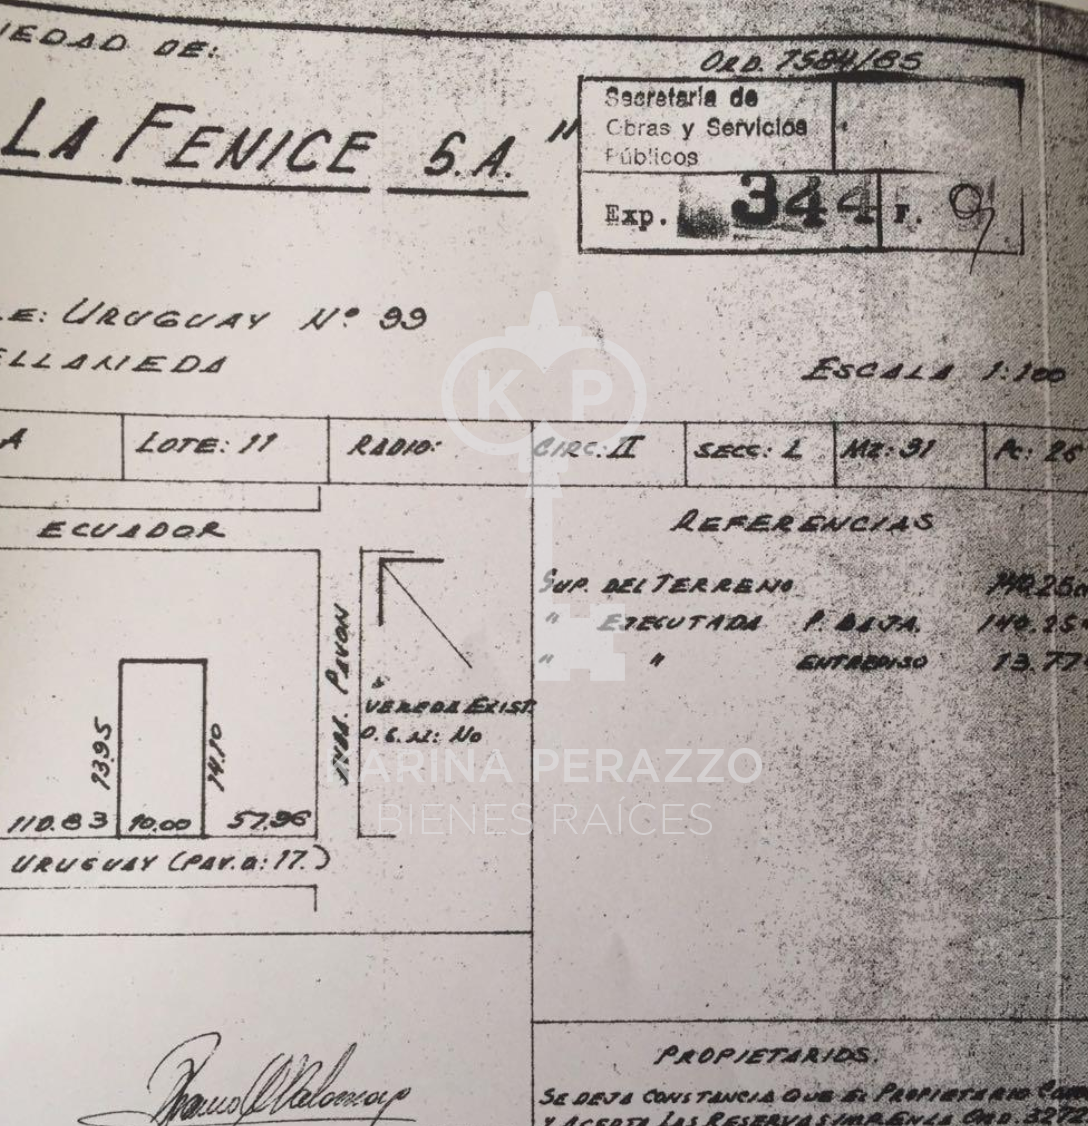 IEDAD DE:
ORD. 7584/85
LA FENICE S.A."
Secretaría de
Obras y Servicios
Públicos
Exp. 344 F.
LE: URUGUAY Nº 99
ELLANEDA
ESCALA 1:100
A LOTE: 11 RADIO: CIRC.: II SECC: L MZ: 91 PC: 26
ECUADOR
REFERENCIAS
SUP. DEL TERRENO 140.25
" EJECUTADA P. BAJA. 140.25
" " ENTREPISO 13.77
PAVON
VEREDA EXIST.
O.S.N: NO
13.95
14.10
110.83 10.00 57.96
URUGUAY (PAV. a: 17.)
KP
KARINA PERAZZO
BIENES RAÍCES
PROPIETARIOS.
SE DEJA CONSTANCIA QUE EL PROPIETARIO
Y ACEPTA LAS RESERVAS EN LA ORD. 3272